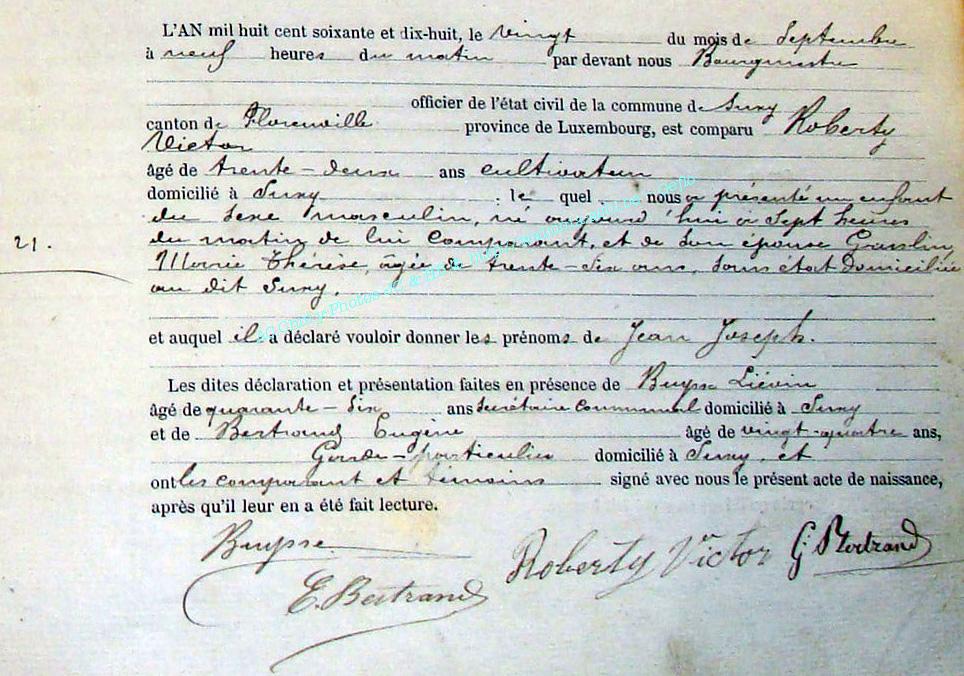 L'AN mil huit cent soixante et dix-huit, le vingt du mois de Septembre
à neuf heures du matin par devant nous Bourgmestre
officier de l'état civil de la commune de Suxy
canton de Florenville province de Luxembourg, est comparu Roberty
Victor
âgé de trente-deux ans cultivateur
domicilié à Suxy le quel nous a présenté un enfant
du sexe masculin, né aujourd'hui à Sept heures
21. du matin de lui comparant, et de son épouse Goeslin,
Marie Thérèse, âgée de trente-six ans, sans état domiciliée
au dit Suxy.
et auquel il a déclaré vouloir donner les prénoms de Jean Joseph.
Les dites déclaration et présentation faites en présence de Buysse Liévin
âgé de quarante-six ans Secrétaire communal domicilié à Suxy
et de Bertrand Eugène âgé de vingt-quatre ans,
Garde-particulier domicilié à Suxy, et
ont les comparant et témoins signé avec nous le présent acte de naissance,
après qu'il leur en a été fait lecture.
Buysse
Roberty Victor G Bertrand
E. Bertrand